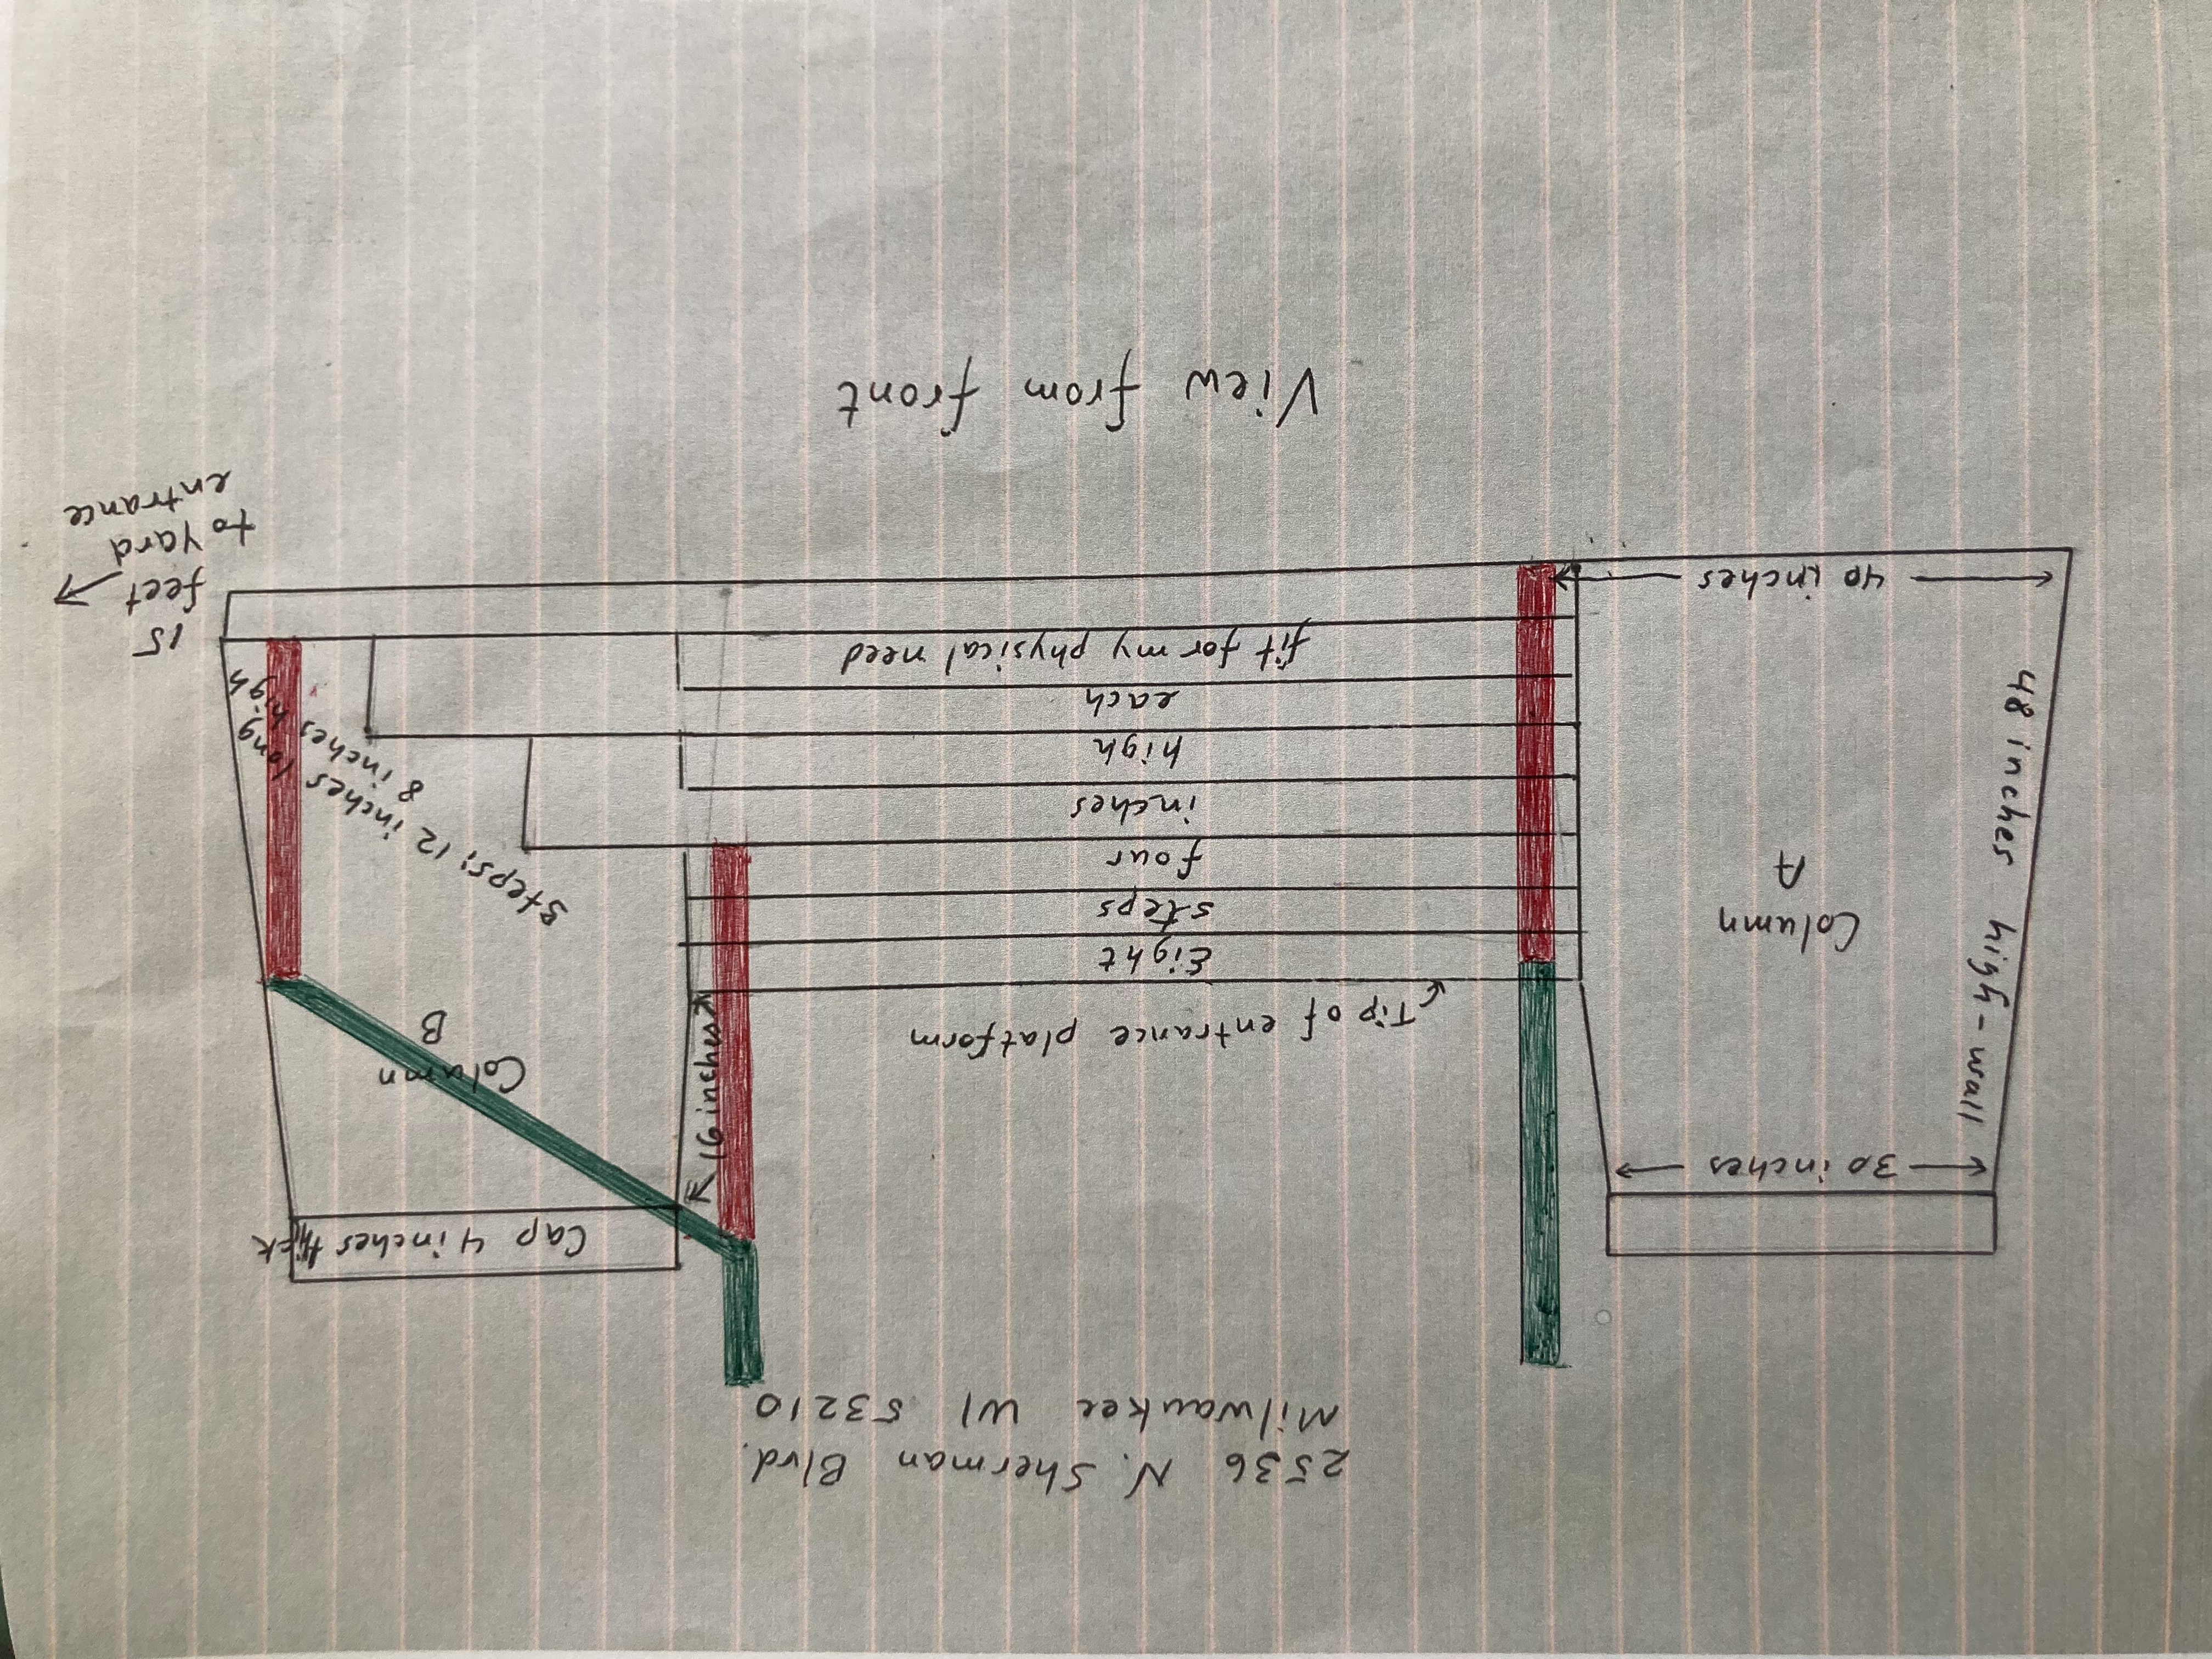 2536 N. Sherman Blvd.
Milwaukee WI 53210
Cap 4 inches thick
30 inches
16 inches
Column
A
Column
B
48 inches high - wall
Tip of entrance platform
Eight
steps
four
inches
high
each
fit for my physical need
steps; 12 inches long
8 inches high
high
40 inches
15
feet
to yard
entrance
View from front